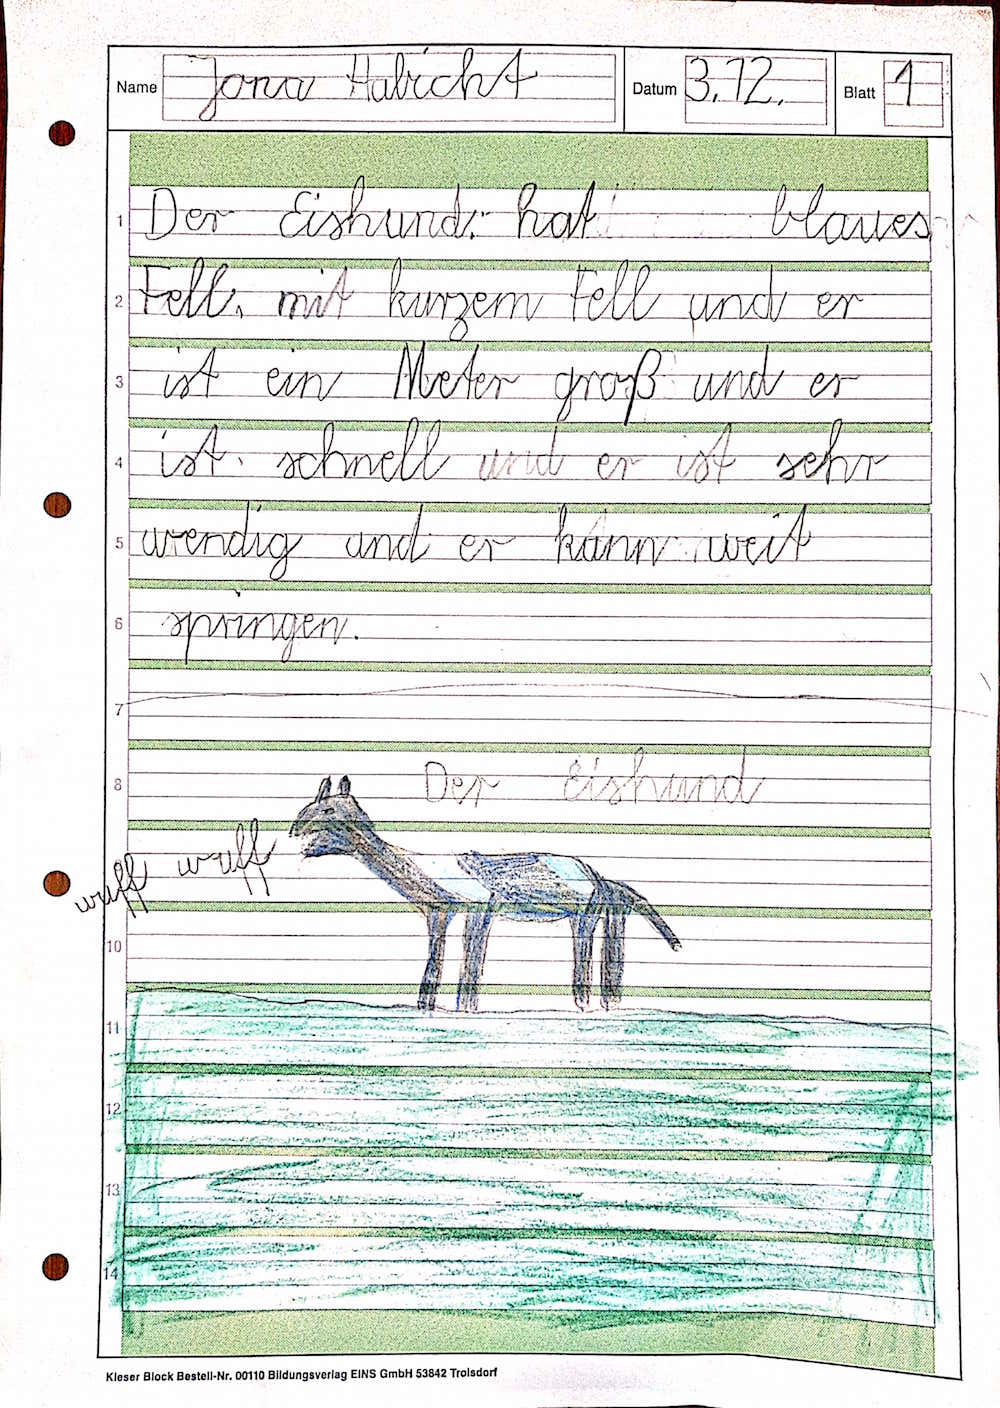 Name Jona Habicht Datum 3.12. Blatt 1
1 Der Eishund hat blaues
2 Fell. mit kurzem Fell und er
3 ist ein Meter groß und er
4 ist schnell und er ist sehr
5 wendig und er kann weit
6 springen.
7
8 Der Eishund
wuff wuff
10
11
12
13
14
Kieser Block Bestell-Nr. 00110 Bildungsverlag EINS GmbH 53842 Troisdorf